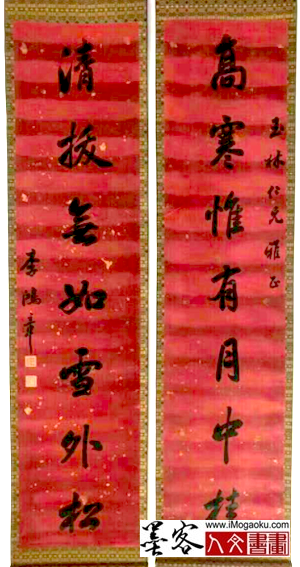 玉林仁兄雅正
高寒惟有月中桂
清拔無如雪外松
李鴻章
墨客
www.iMogaoku.com
人文書畫